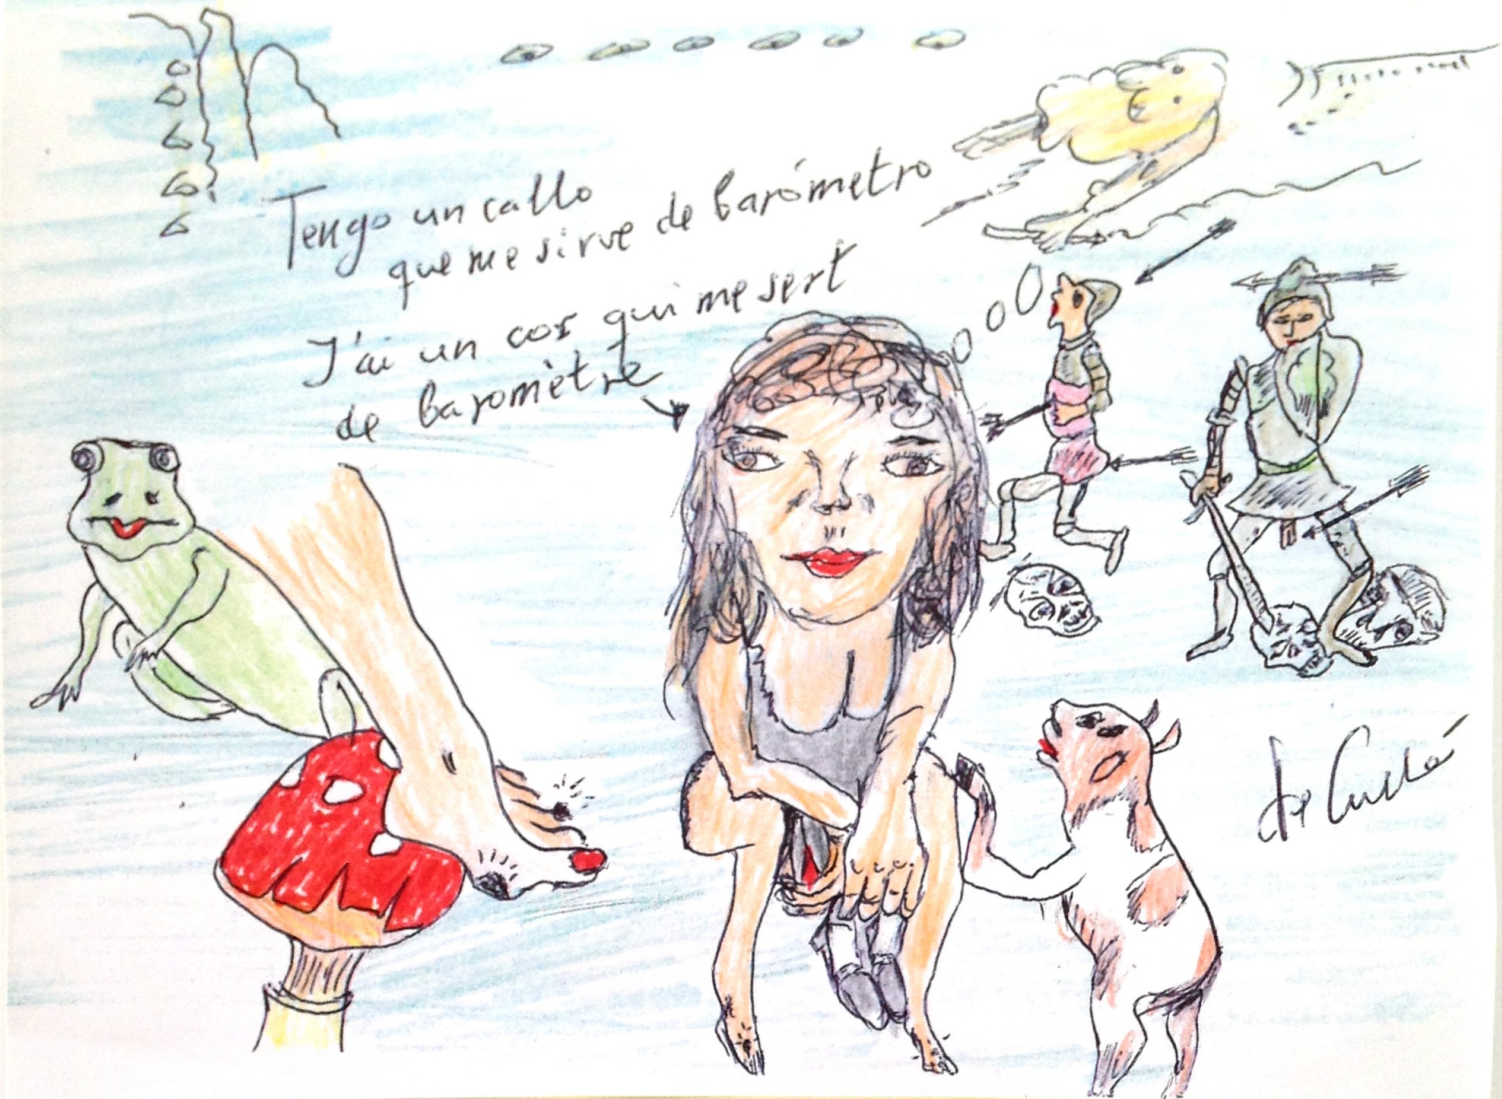 Tengo un callo
que me sirve de barómetro
J'ai un cor qui me sert
de baromètre
de Cullá